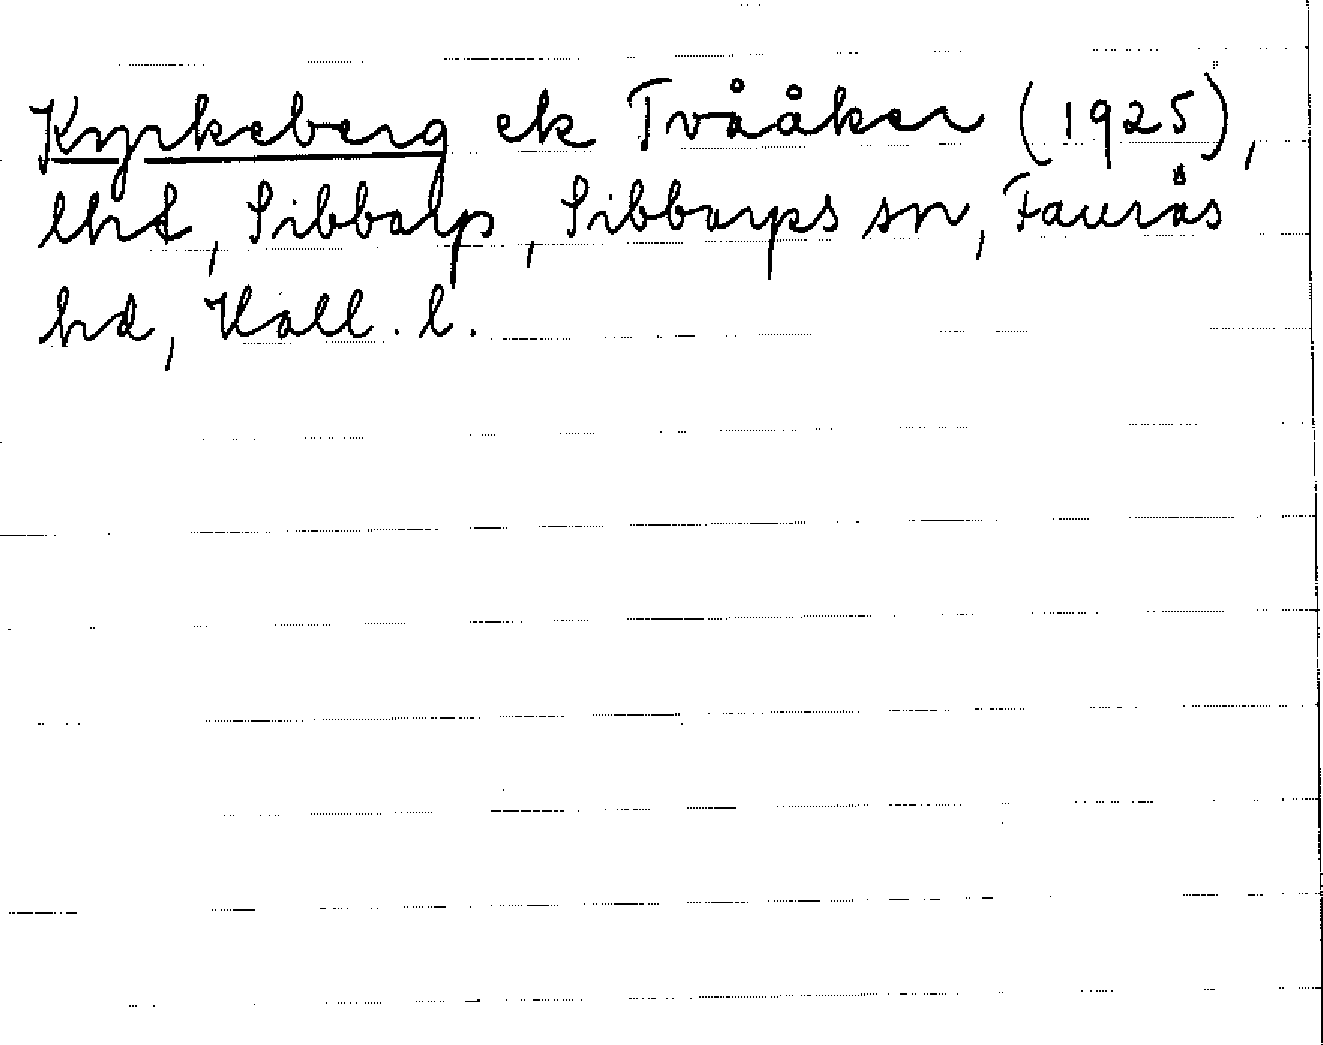 Kyrkeberg ek Tvååker (1925),
lht, Sibbalp, Sibbarps sn, Faurås
hd, Hall. l.